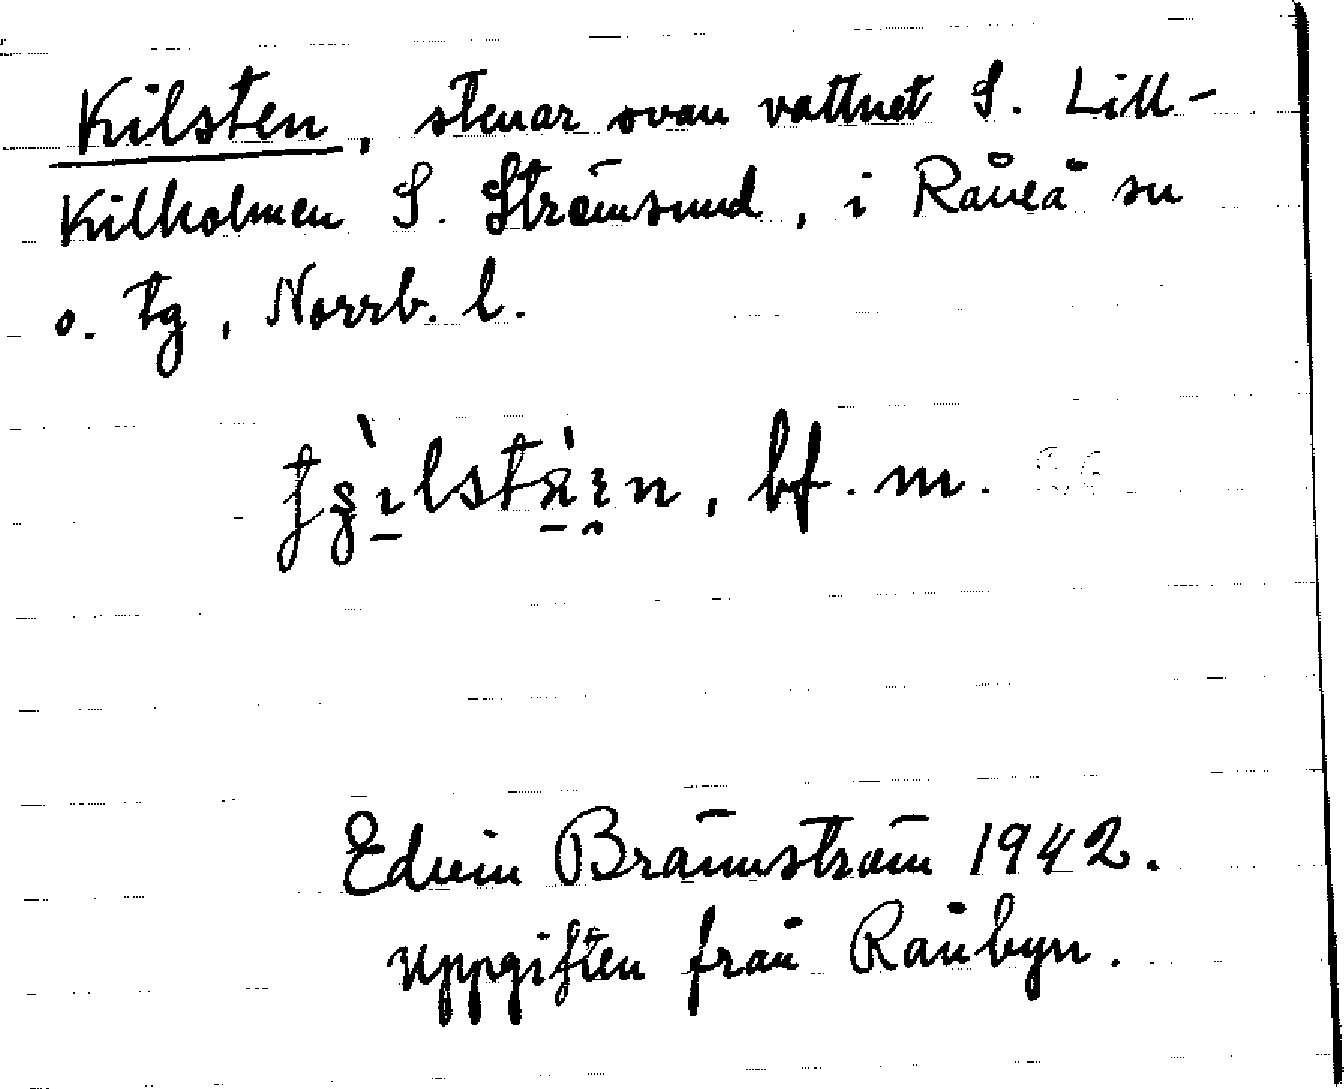 Kilsten, stenar ovan vattnet S. Lill-
Kilholmen S. Strömsund, i Råneå sn
o. tg, Norrb. l.
bf. m.
Edvin Brännström 1942.
Uppgiften från Rånbyn.